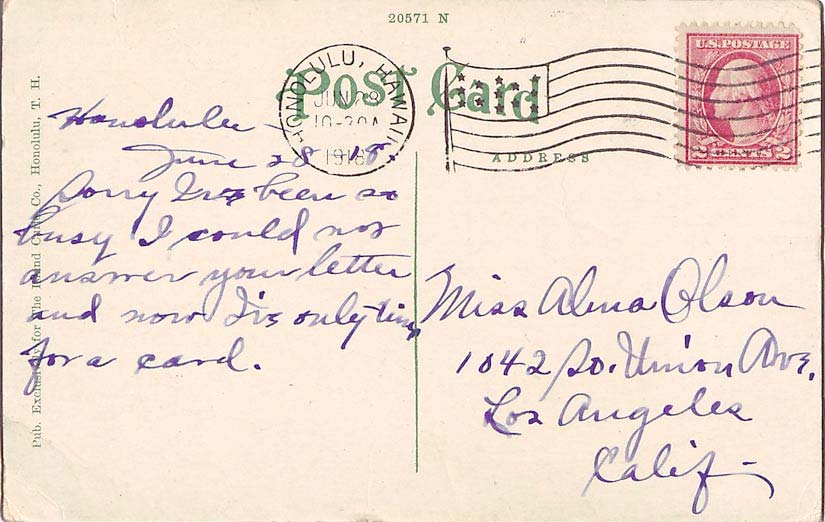 20571 N
Post Card
ADDRESS
HONOLULU, HAWAII
JUN 28
10-30A
1918
U.S. POSTAGE
2 CENTS 2
Honolulu -
June 28 18.
Sorry I've been so
busy I could not
answer your letter
and now I've only time
for a card.
Miss Alma Olson
1042 So. Union Ave.
Los Angeles
Calif -
Pub. Exclusively for The Island Curio Co., Honolulu, T. H.